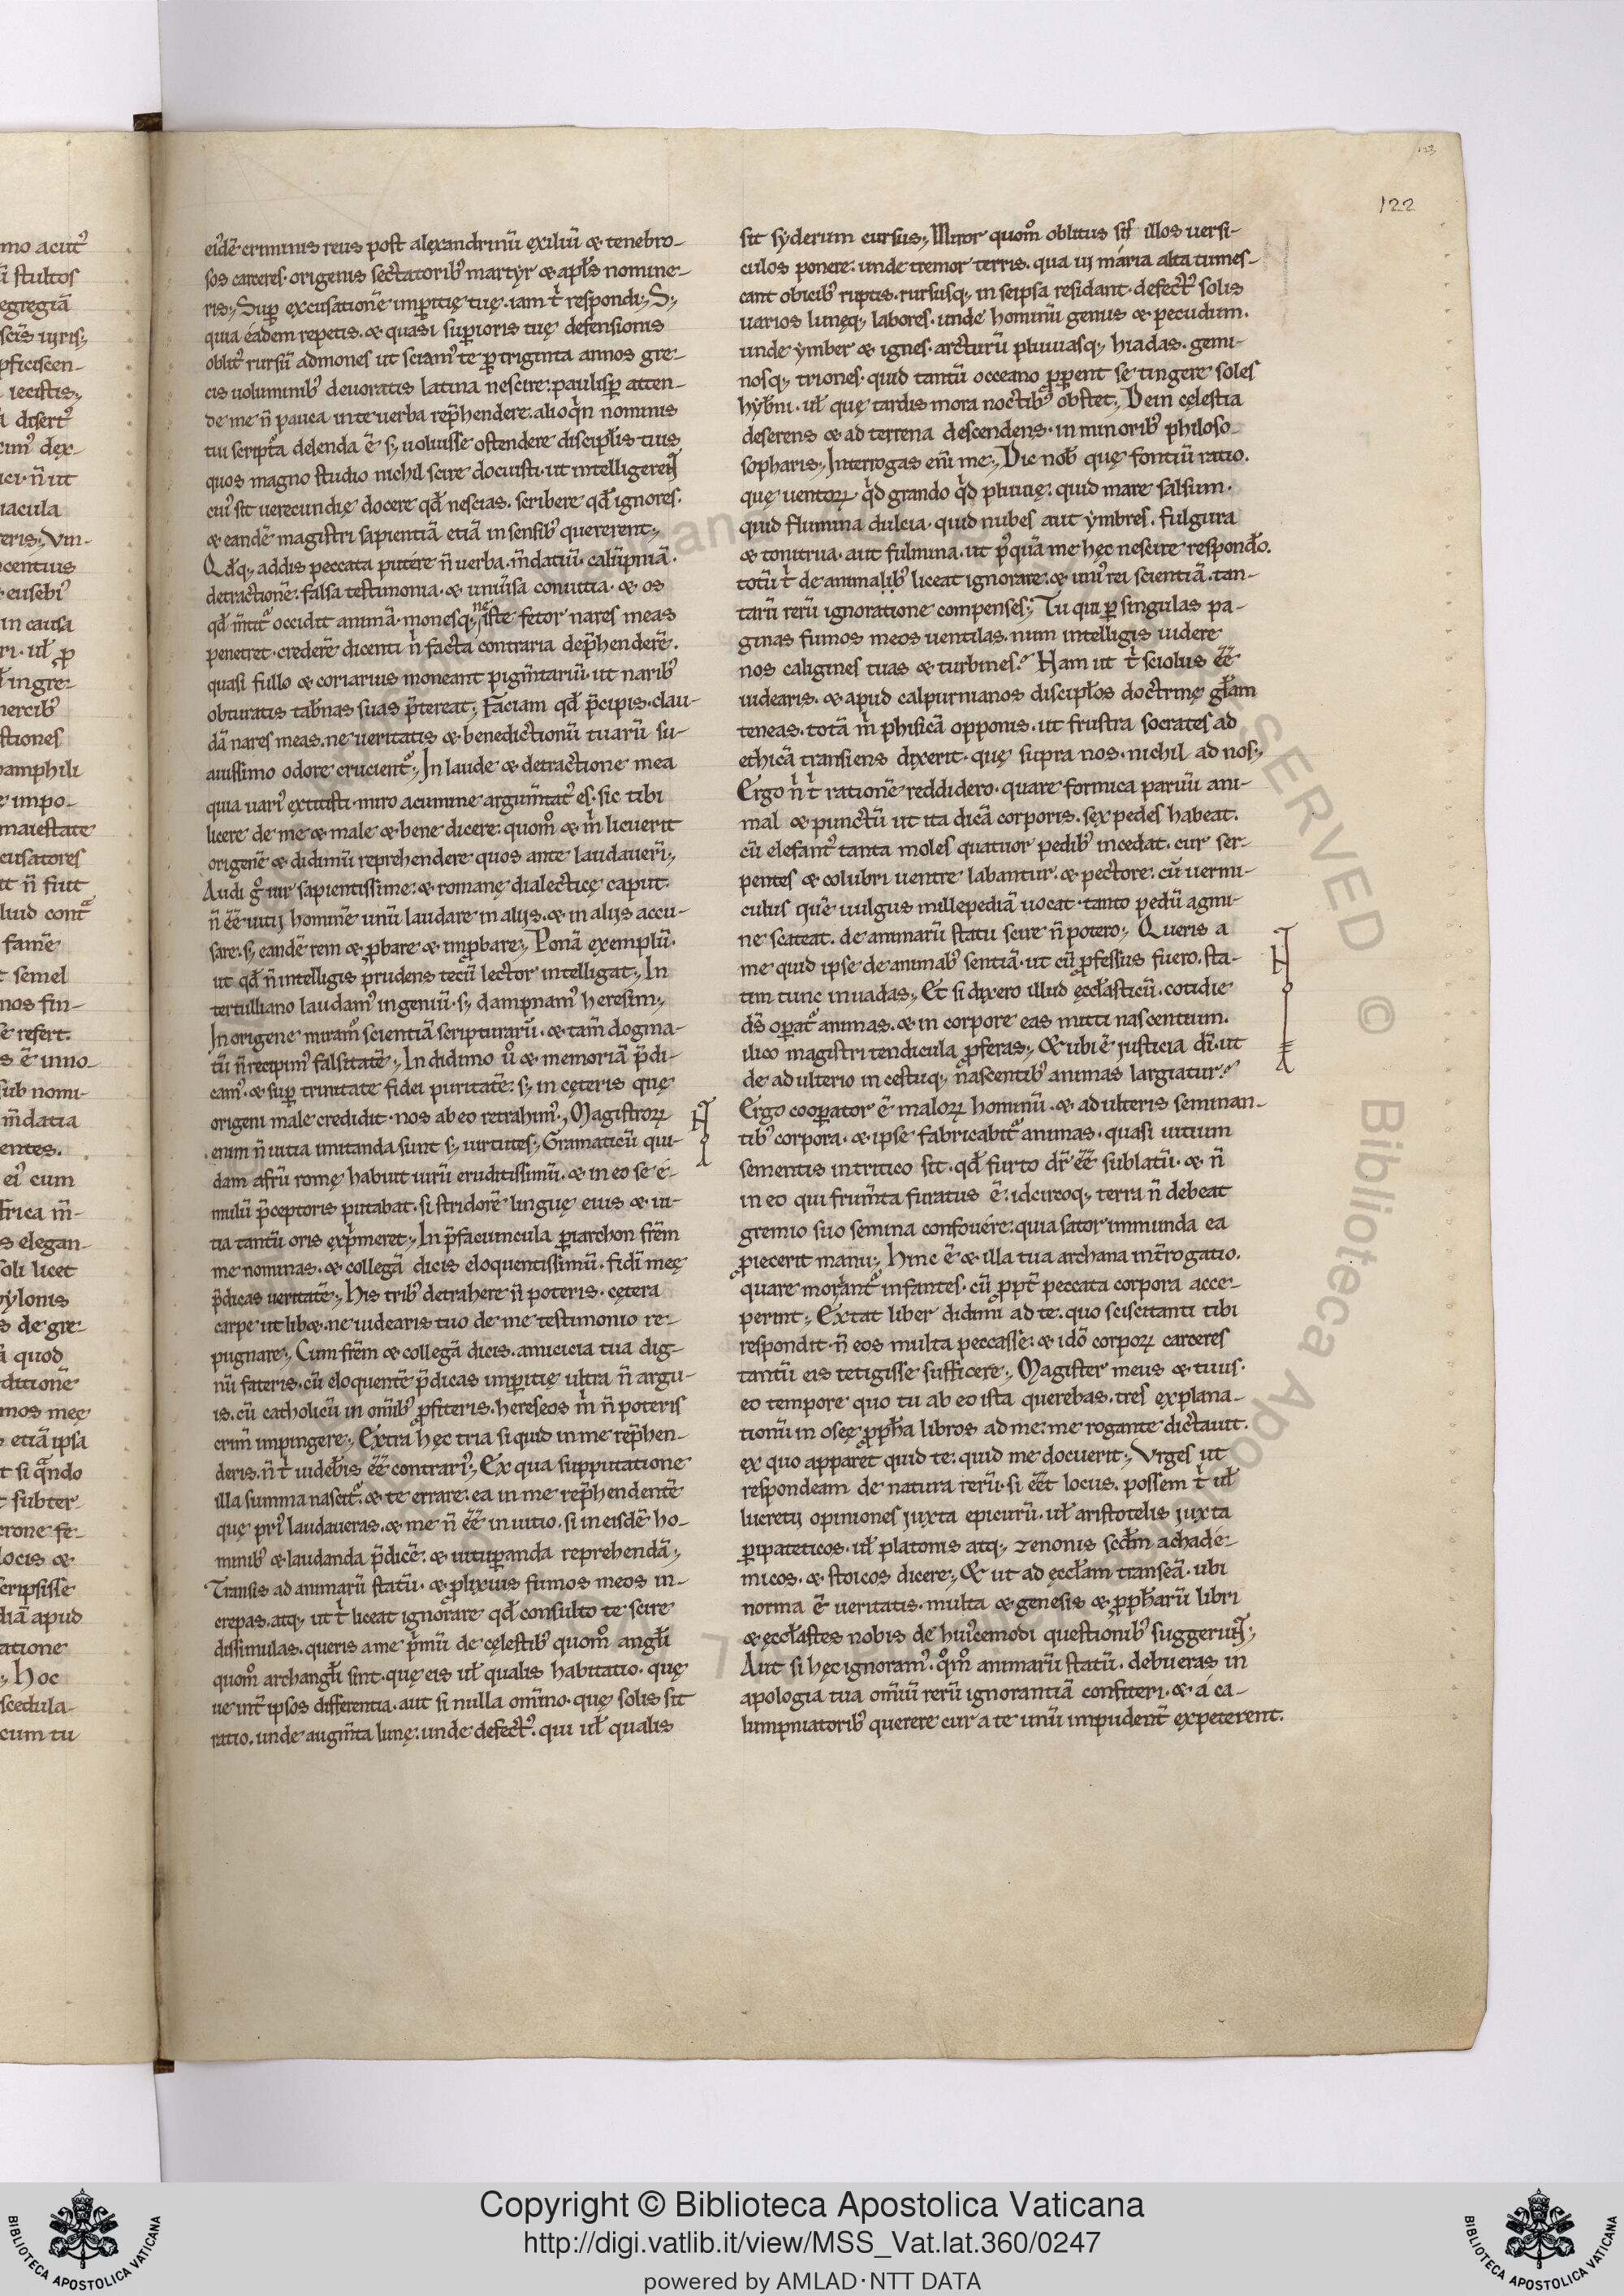 122
eiꝰdē criminis reus post alęxandrinū ęxiliū & tenebro-
sos carceres. origenis sectatoribꝰ martyr & apłs nomine-
ris; Suꝑ excusationē imꝑitię tuę. iam t̍ respondi; S;
quia éadem repetis. & quasi suꝑioris tuę defensionis
oblitꝰ rursū admones ut sciamꝰ te ꝑ triginta annos gre-
cis uoluminibꝰ deuoratis latina nescire: paulisꝑ atten-
de me n̄ pauca in te uerba rep̄hendere. alioq̍n nominis
tui scriptᷓa delenda ē s; uoluisse ostendere discipłis tuis
quos magno studio nichil scire docuisti. ut intelligerent
cuiꝰ sit uerecundię docere qđ nescias. scribere qđ ignores.
& eandē magistri sapientiā etiā in sensibꝰ quererent;
Qđq; addis peccata putére n̄ uerba. m̄datiū. calūpniā.
detractionē. falsa testimonia. & uniūsa conuitia. & os
qđ m̄titᷓ occidit animā. monesq; ne iste fetor nares meas
penetret. crederē dicenti n̍ facta contraria dep̄henderē.
quasi fullo & coriarius moneant pigm̄tariū. ut naribꝰ
obturatis tab̄nas suas p̄tereat; Faciam qđ p̄cipis. clau-
dā nares meas. ne ueritatis & benedictionū tuarū su-
auissimo odore crucientᷓ; In laude & detractione mea
quia uariꝰ ęxtitisti. miro acumine argum̄tatꝰ es. sic tibi
licere de me & male & bene dicere: quom̊ & m̍ licuerit
origenē & didimū reprehendere quos ante laudauerī;
Audi g̊ uir sapientissime: & romanę dialecticę caput.
n̄ ēē uitij hominē unū laudare in alijs. & in alijs accu-
sare. s; eandē rem & ꝓbare & imꝓbare; Ponā ęxemplū.
ut qđ n̄ intelligis prudens tecū lector intelligat; In
tertulliano laudamꝰ ingeniū. s; dampnamꝰ heresim;
In origene miramᷓ scientiā scripturarū. & tam̄ dogma-
tū n̄ recipimꝰ falsitatē; In didimo ů & memoriā p̄di-
camꝰ. & suꝑ trinitate fidei puritatē: s; in cęteris quę
origeni male credidit. nos ab eo retrahimꝰ; Magistroꝝ
enim n̄ uitia imitanda sunt s; uirtutes; Gramaticū qui-
dam afrū romę habuit uirū eruditissimū. & in eo se é-
mulū p̄ceptoris putabat. si stridorē linguę eius & ui-
tia tantū oris ęxp̍meret; In p̄faciuncula ꝑiarchon frēm
me nominas. & collegā dicis eloquentissimū. fidī meę
p̄dicas ueritatē; His tribꝰ detrahere n̄ poteris. cętera
carpe ut lib&. ne uidearis tuo de me testimonio re-
pugnare; Cum frēm & collegā dicis. amicicia tua dig-
nū fateris. cū eloquentē p̄dicas imꝑitię ultra n̄ argu-
is. cū catholicū in om̄ibꝰ ꝓfiteris. hereseos m̍ n̄ poteris
crim̄ impingere; Extra hęc tria si quid in me rep̄hen-
deris. n̄ t̍ uideb̄is ēē contrariꝰ; Ex qua supputatione
illa summa nascitᷓ. & te errare. ea in me rep̄hendentē
quę priꝰ laudaueras. & me n̄ ēē in uitio. si in eisdē ho-
minibꝰ & laudanda p̄dicē: & uituꝑanda reprehendā;
Transis ad animarū statū. & ꝓlixius fumos meos in-
crepas. atq; ut t̍ liceat ignorare qđ consulto te scire
dissimulas. queris a me p̍mū de cęlestibꝰ quom̊ angłi
quom̊ archangłi sint. quę eis uł qualis habitatio. quę
ue int̄ ipsos differentia. aut si nulla om̄ino. quę solis sit
ratio. unde augm̄ta lunę: unde defectꝰ. qui uł qualis
sit syderum cursus; Miror quom̊ oblitus sis illos uersi-
culos ponere: unde tremor terris. qua uj mária alta tumes-
cant obicibꝰ ruptis. rursusq; in seipsa residant. defectꝰ solis
uarios lunęq; labores. unde hominū genus & pecudum.
unde ymber & ignes. arcturū pluuiasq; hiadas. gemi-
nosq; triones. quid tantū occeano ꝓꝑent se tingere soles
hyb̄ni. uł quę tardis mora noctibꝰ obstet; Dein cęlestia
deserens & ad terrena descendens. in minoribꝰ philoso-
sopharis; Interrogas eni̅ me; Dic nob̄ quę fontiū ratio.
quę uentoꝝ q̍d grando q̍d pluuię: quid mare salsum.
quid flumina dulcia. quid nubes aut ymbres. fulgura
& tonitrua. aut fulmina. ut pꝰquā me hęc nescire respondo̅.
totū t̍ de animalibꝰ liceat ignorare: & uniꝰ rei scientiā. tan-
tarū rerū ignoratione compenses; Tu qui ꝑ singulas pa-
ginas fumos meos uentilas. num intelligis uidere
nos caligines tuas & turbines? Nam ut t̍ sciolus ēē
uidearis. & apud calpurnianos discipłos doctrinę głam
teneas. totā m̍ phisicā opponis. ut frustra socrates ad
ethicā transiens dixerit. quę supra nos. nichil ad nos;
Ergo n̍ t̍ rationē reddidero. quare formica paruū ani-
mal & punctū ut ita dicā corporis. sęx pedes habeat.
cū elefantꝰ tanta moles quatuor pedibꝰ incedat. cur ser-
pentes & colubri uentre labantur: & pectore. cū uermi-
culus quē uulgus millepediā uocat. tanto pedū agmi-
ne scateat. de animarū statu scire n̄ potero; Queris a
me quid ipse de animabꝰ sentiā. ut cū ꝓfessus fuero. sta-
tim tunc inuadas; Et si dixero illud ęccłasticū. cotidie
ds̄ oꝑatᷓ animas. & in corpore eas mitti nascentium.
ilico magistri tendicula ꝓferas; & ubi ē justicia dī. ut
de adulterio incestuq; nascentibꝰ animas largiatur?
Ergo cooꝑator ē maloꝝ hominū. & adulteris seminan-
tibꝰ corpora. & ipse fabricabitᷓ animas. quasi uitium
sementis in tritico sit. qđ furto dr̄ ēē sublatū. & n̄
in eo qui frum̄ta furatus ē. idcircoq; terra n̄ debeat
gremio suo semina confouére: quia sator immunda ea
ꝓiecerit manu; Hinc ē & illa tua archana int̄rogatio.
quare moriantᷓ infantes. cū ꝓpt̄ peccata corpora acce-
perint; Extat liber didimi ad te. quo sciscitanti tibi
respondit. n̄ eos multa peccasse: & idō corpoꝝ carceres
tantū eis tetigisse sufficere; Magister meus & tuus.
eo tempore quo tu ab eo ista querebas. tres ęxplana-
tionū in oseę ꝓpħa libros ad me: me rogante dictauit.
ęx quo apparet quid te: quid me docuerit; Vrges ut
respondeam de natura rerū. si ēēt locus. possem t̍ uł
lucretij opiniones juxta epicurū. uł aristotelis juxta
ꝑipateticos. uł platonis atq; zenonis scđm achadé-
micos. & stoicos dicere; & ut ad ęccłam transeā. ubi
norma ē ueritatis. multa & genesis & ꝓpħarū libri
& ęccłastes nobis de huiꝰcemodi questionibꝰ suggerunt;
Aut si hęc ignoramꝰ. q̊m̊ animarū statū. debueras in
apologia tua om̄iū rerū ignorantiā confiteri. & á ca-
lumpniatoribꝰ querere cur a te unū impudent̄ ęxpeterent.
Copyright © Biblioteca Apostolica Vaticana
http://digi.vatlib.it/view/MSS_Vat.lat.360/0247
powered by AMLAD·NTT DATA
BIBLIOTECA APOSTOLICA VATICANA
BIBLIOTECA APOSTOLICA VATICANA